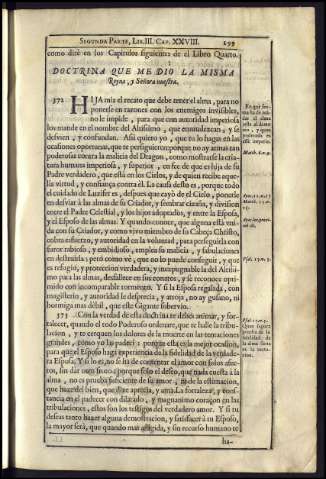 SEGUNDA PARTE, LIB. III. CAP. XXVIII. 299
como diré en los Capitulos siguientes de el Libro Quarto.
DOCTRINA QUE ME DIO LA MISMA
Reyna, y Señora nuestra.
372 HIJA mia el recato que debe tener el alma, para no
ponerse en razones con los enemigos invisibles,
no le impide, para que con autoridad imperiosa
los mande en el nombre del Altissimo, que enmudezcan, y se
desvien, y confundan. Assi quiero yo, que tu lo hagas en las
ocasiones oportunas, que te persiguieren; porque no ay armas tan
poderosas contra la malicia del Dragon, como mostrarse la criatura
humana imperiosa, y superior, en fee de que es hija de su
Padre verdadero, que está en los Cielos, y de quien recibe aquella
virtud, y confiança contra él. La causa desto es, porque todo
el cuidado de Lucifer es, despues que cayó de el Cielo, ponerle
en desviar à las almas de su Criador, y sembrar cizaña, y division
entre el Padre Celestial, y los hijos adoptados, y entre la Esposa,
y el Esposo de las almas. Y quando conoce, que alguna está unida
con su Criador, y como vivo miembro de su Cabeça Christo,
cobra esfuerço, y autoridad en la voluntad, para perseguirla con
furor rabioso, y embidioso, emplea su malicia, y
en destruirla: pero como vé, que no lo puede conseguir, y que
es refugio, y proteccion verdadera, y inexpugnable la del Altissimo
para las almas, desfallece en sus conatos, y se reconoce oprimido
con incomparable tormento. Y si la Esposa regalada, con
magisterio, y autoridad le desprecia, y arroja, no ay gusano, ni
hormiga mas débil, que este Gigante sobervio.
373 Con la verdad de esta doctrina te debes animar, y fortalecer,
quando el todo Poderoso ordenare, que te halle la tribulacion,
y te cerquen los dolores de la muerte en las tentaciones
grandes, como yo las padecí: porque esta es la mejor ocasion,
para que el Esposo haga experiencia de la fidelidad de la verdadera
Esposa. Y si lo es, no se ha de contentar el amor con solos afectos,
sin dar otro fruto; porque solo el deseo, que nada cuesta à la
alma, no es prueba suficiente de su amor, ni de la estimacion,
que haze del bien, que dize aprecia, y ama. La fortaleza, y constancia
en el padecer con dilatado, y magnanimo coraçon en las
tribulaciones, estos son los testigos del verdadero amor. Y si tu
deseas tanto hazer alguna demonstracion, y satisfacer à tu Esposo,
la mayor será, que quando mas afligida, y sin recurso humano te
ha-